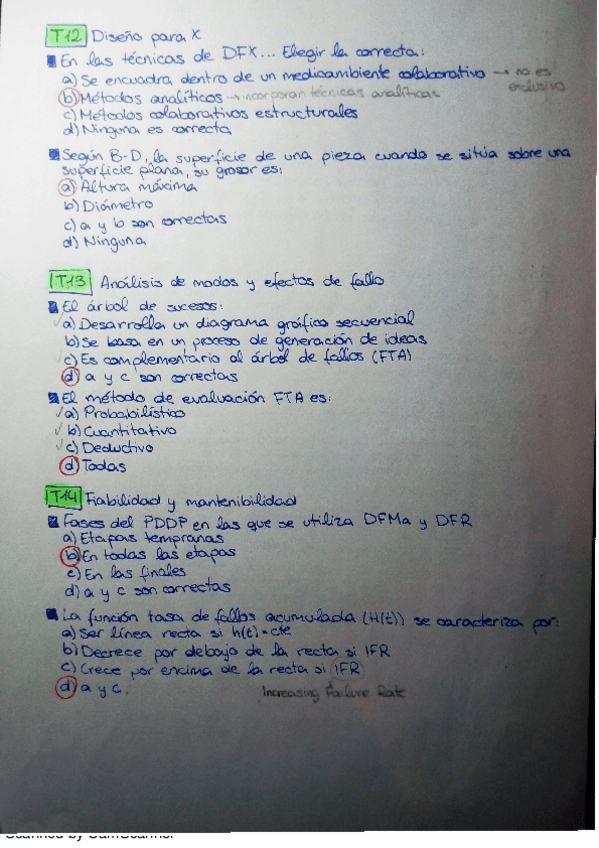 T12 Diseño para X
En las técnicas de DFX... Elegir la correcta:
a) Se encuadra dentro de un medioambiente colaborativo → no es exclusivo
b) Métodos analíticos → incorporan técnicas analíticas
c) Métodos colaborativos estructurales
d) Ninguna es correcta
Según B-D, la superficie de una pieza cuando se sitúa sobre una
superficie plana, su grosor es:
a) Altura máxima
b) Diámetro
c) a y b son correctas
d) Ninguna
T13 Análisis de modos y efectos de fallo
El árbol de sucesos:
a) Desarrolla un diagrama gráfico secuencial
b) Se basa en un proceso de generación de ideas
c) Es complementario al árbol de fallos (FTA)
d) a y c son correctas
El método de evaluación FTA es:
✓ a) Probabilístico
✓ b) Cuantitativo
✓ c) Deductivo
d) Todas
T14 Fiabilidad y mantenibilidad
Fases del PDDP en las que se utiliza DFMa y DFR
a) Etapas tempranas
b) En todas las etapas
c) En las finales
d) a y c son correctas
La función tasa de fallos acumulada (H(t)) se caracteriza por:
a) Ser línea recta si h(t)=cte
b) Decrece por debajo de la recta si IFR
c) Crece por encima de la recta si IFR
d) a y c.
Increasing Failure Rate
Scanned by CamScanner